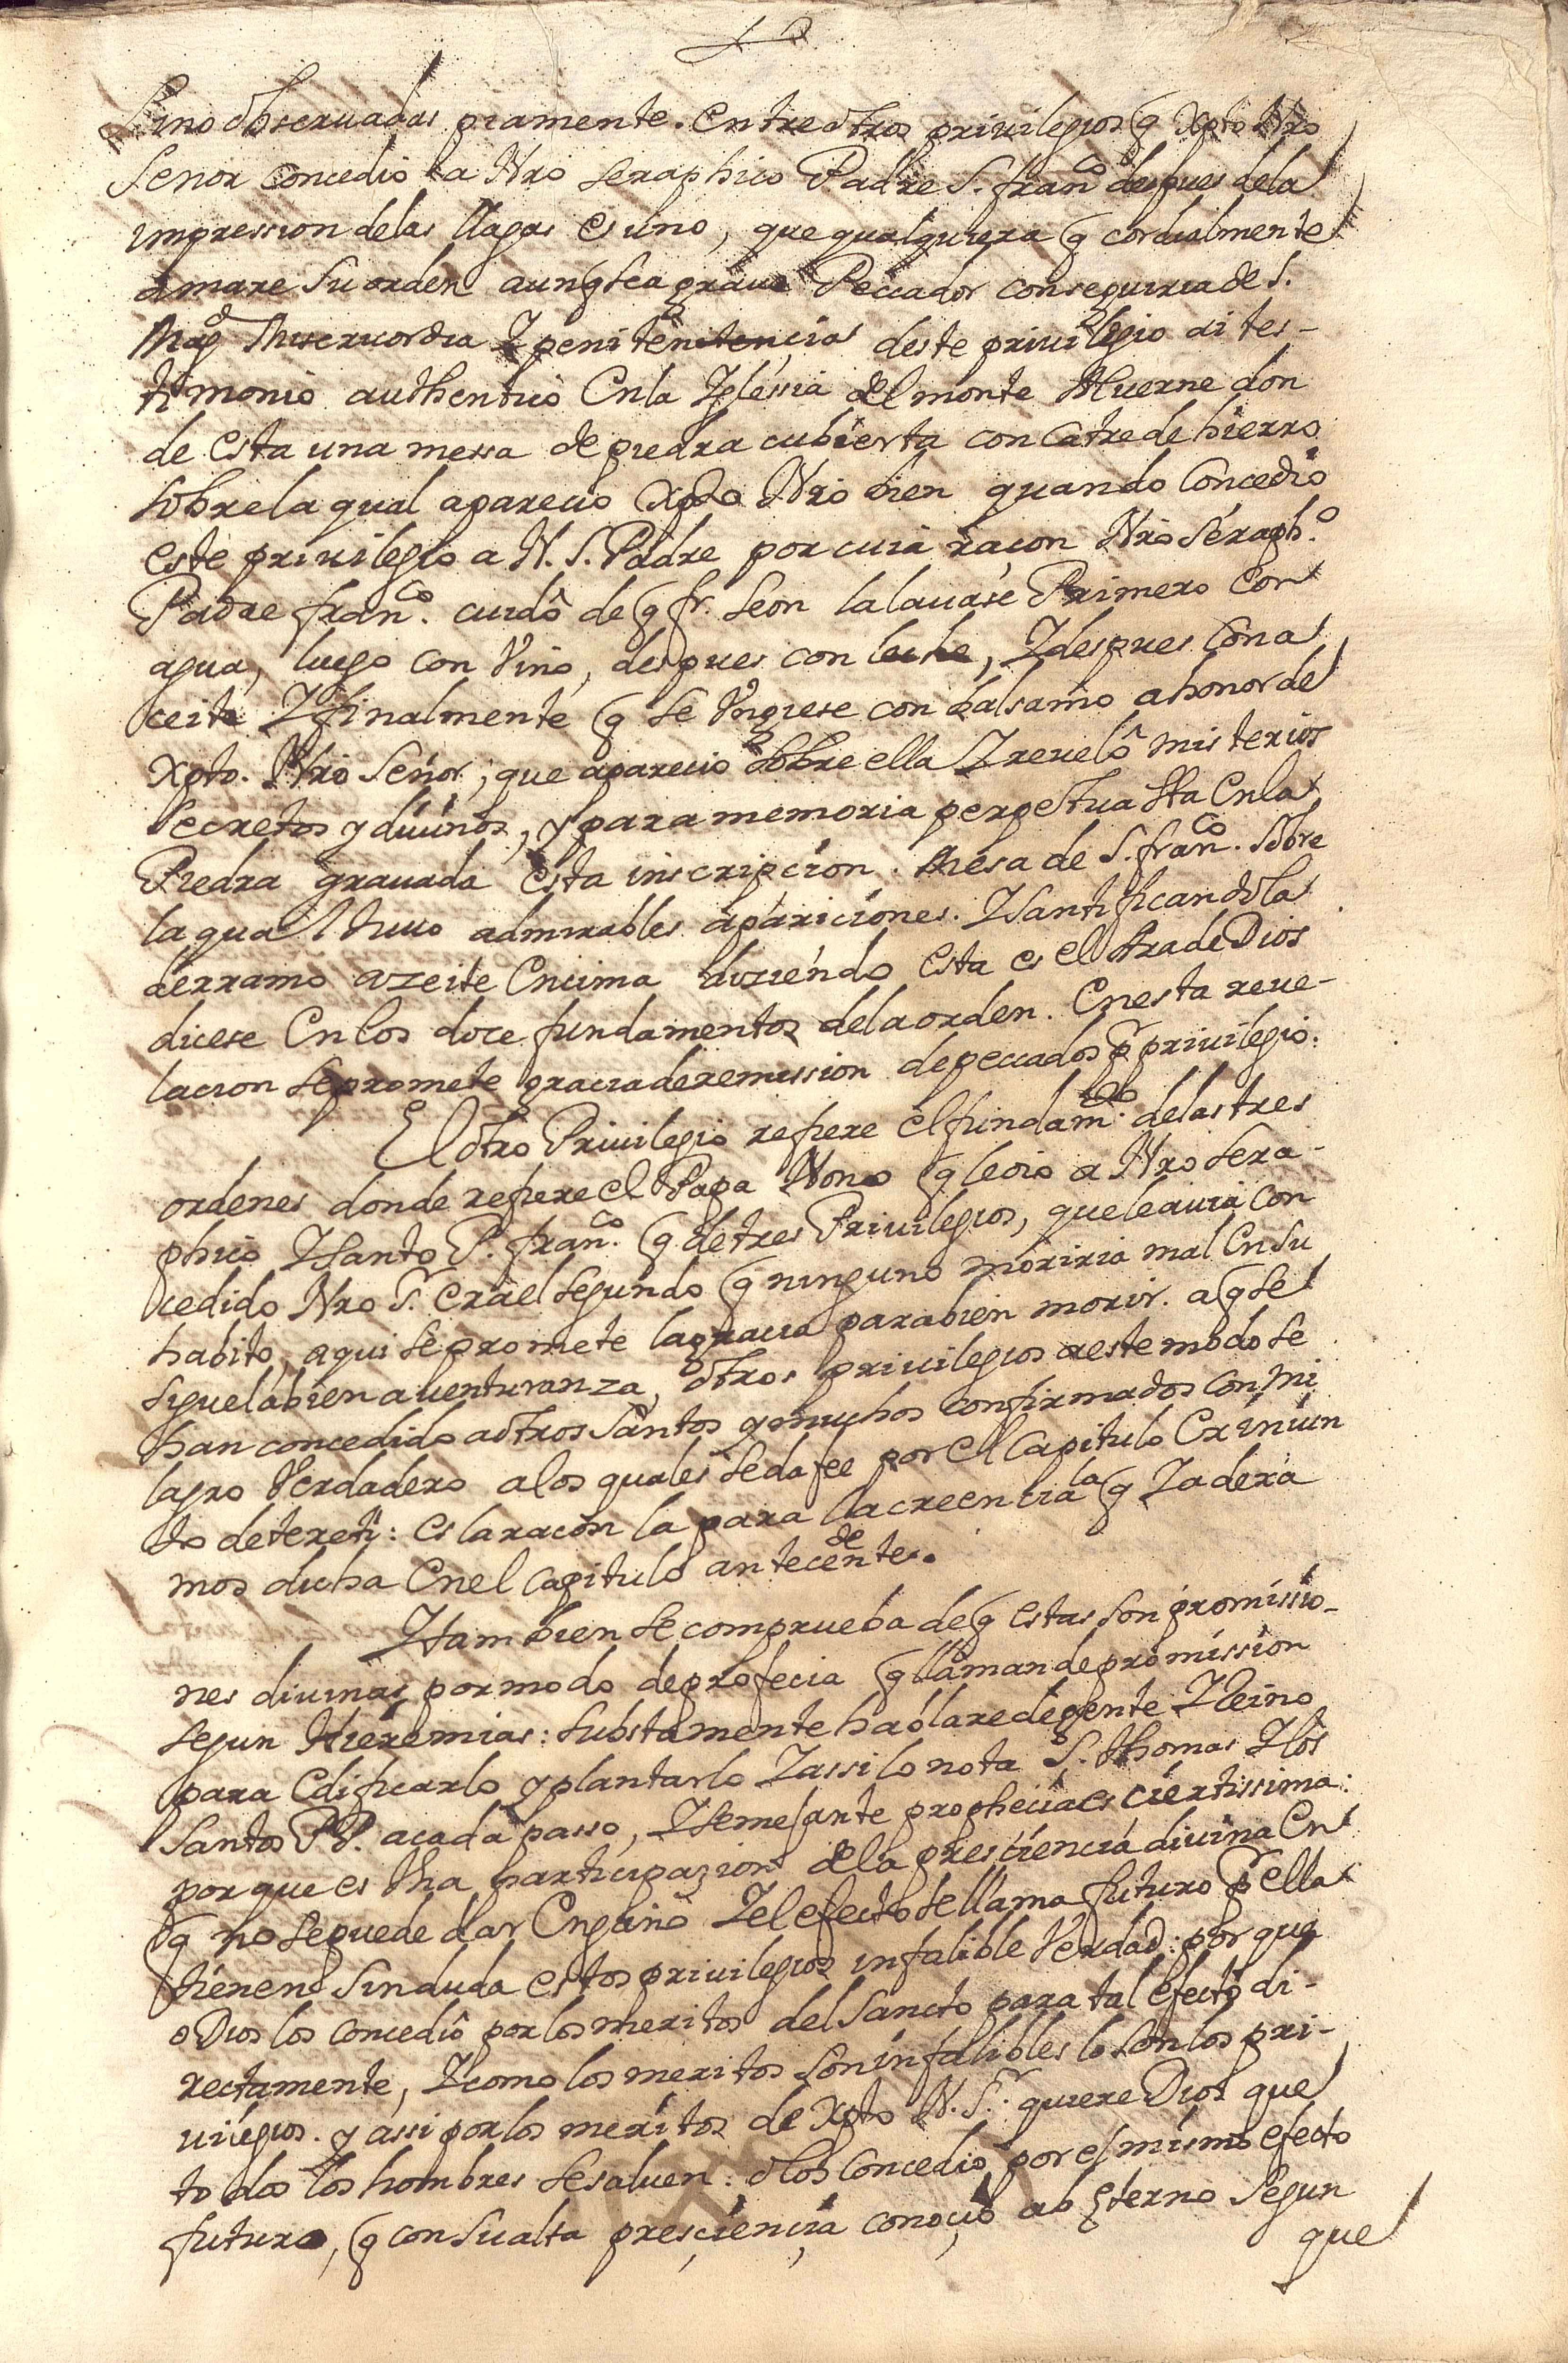 Sino observadas piamente. Entre otros privilegios q Xpto Nro
Señor concedio a Nro seraphico Padre S. franco despues de la
impression de las llagas es uno, que qualquiera q cordialmente
amare su orden aunq sea grave Peccador conseguiria de S.
Magd Misericordia Y penitencia deste privilegio ai tes-
timonio authentico En la Yglesia del monte Alverne don
de esta una messa de piedra cubierta con Catre de hierro
sobre la qual aparecio Xpto Nro bien quando Concedio
este privilegio a N. S. Padre por cuia raçon Nro Seraph.o
Padre franco. cuidô de q fr. Leon la lavase Primero con
agua, luego con Vino, despues con leche, Y despues con a
ceite Y finalmente q se Vngiese con balsamo a honor de
Xpto. Nro Señor, que aparecio sobre ella Y revelô misterios
secretos y divinos, y para memoria perpetua sta En la
Piedra gravada esta inscripcion. Mesa de S. franco. sobre
la qual huvo admirables apariciones. Y santificandola
derramo azeite Encima diziendo esta es el Ara de Dios
dicese En los doce fundamentos de la orden. En esta reve-
lacion se promete gracia de remission de peccados pr privilegio.
El otro Privilegio refiere el fundamto. de las tres
ordenes donde refiere el Papa Nono q le oio a Nro Sera-
phico Y Santo P. franco. q de tres Privilegios, que le avia con
cedido Nro Sr. Era el segundo q ninguno moriria mal En su
habito, aqui se promete la gracia para bien morir. a q se
sigue la bienaventuranza, otros privilegios a este modo se
han concedido a otros Santos y muchos confirmados con mi
lagro Verdadero a los quales se da fee por el Capitulo Ex iniun
to de tereti: es la raçon la para la creencia la q Ya dexa
mos dicha En el capitulo antecedente.
Y tambien se comprueba de q estas son promissio-
nes divinas por modo de profecia q llaman de promission
segun Hieremias: subitamente hablare de gente Y Reino
para Edificarlo y plantarlo Y assi lo nota S. Thomas Y los
Santos PP. a cada passo, Y semejante prophecia es ciertissima:
porque es Vna participazion de la presciencia divina En
q no se puede dar Engaño Y el efecto se llama futuro pr ella
tienen sin duda estos privilegios infalible Verdad: porque
o Dios los concediô por los meritos del Sancto para tal efecto di-
rectamente, Y como los meritos son infalibles lo son los pri-
vilegios. y assi por los meritos de Xpto N. Sr. quiere Dios que
todos los hombres se salven: o los Concedio por el mismo efecto
futuro, q con su alta presciencia conocio ab Eterno segun
que